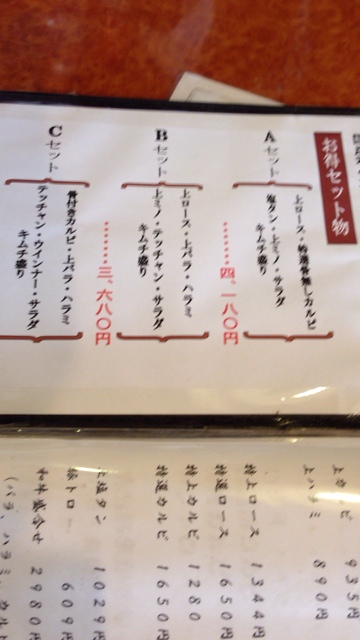 お得セット物
Aセット
上ロース・特選骨無しカルビ
塩タン・上ミノ・サラダ
キムチ盛り
………四、一八〇円
Bセット
上ロース・上バラ・ハラミ
上ミノ・テッチャン・サラダ
キムチ盛り
………三、六八〇円
Cセット
骨付きカルビ・上バラ・ハラミ
テッチャン・ウインナー・サラダ
キムチ盛り
935円
上ハラミ 890円
特上ロース 1344円
特選ロース 1650円
特上カルビ 1280
特選カルビ 1650円
上塩タン 1029円
豚トロ 609円
和牛盛合せ 2980円